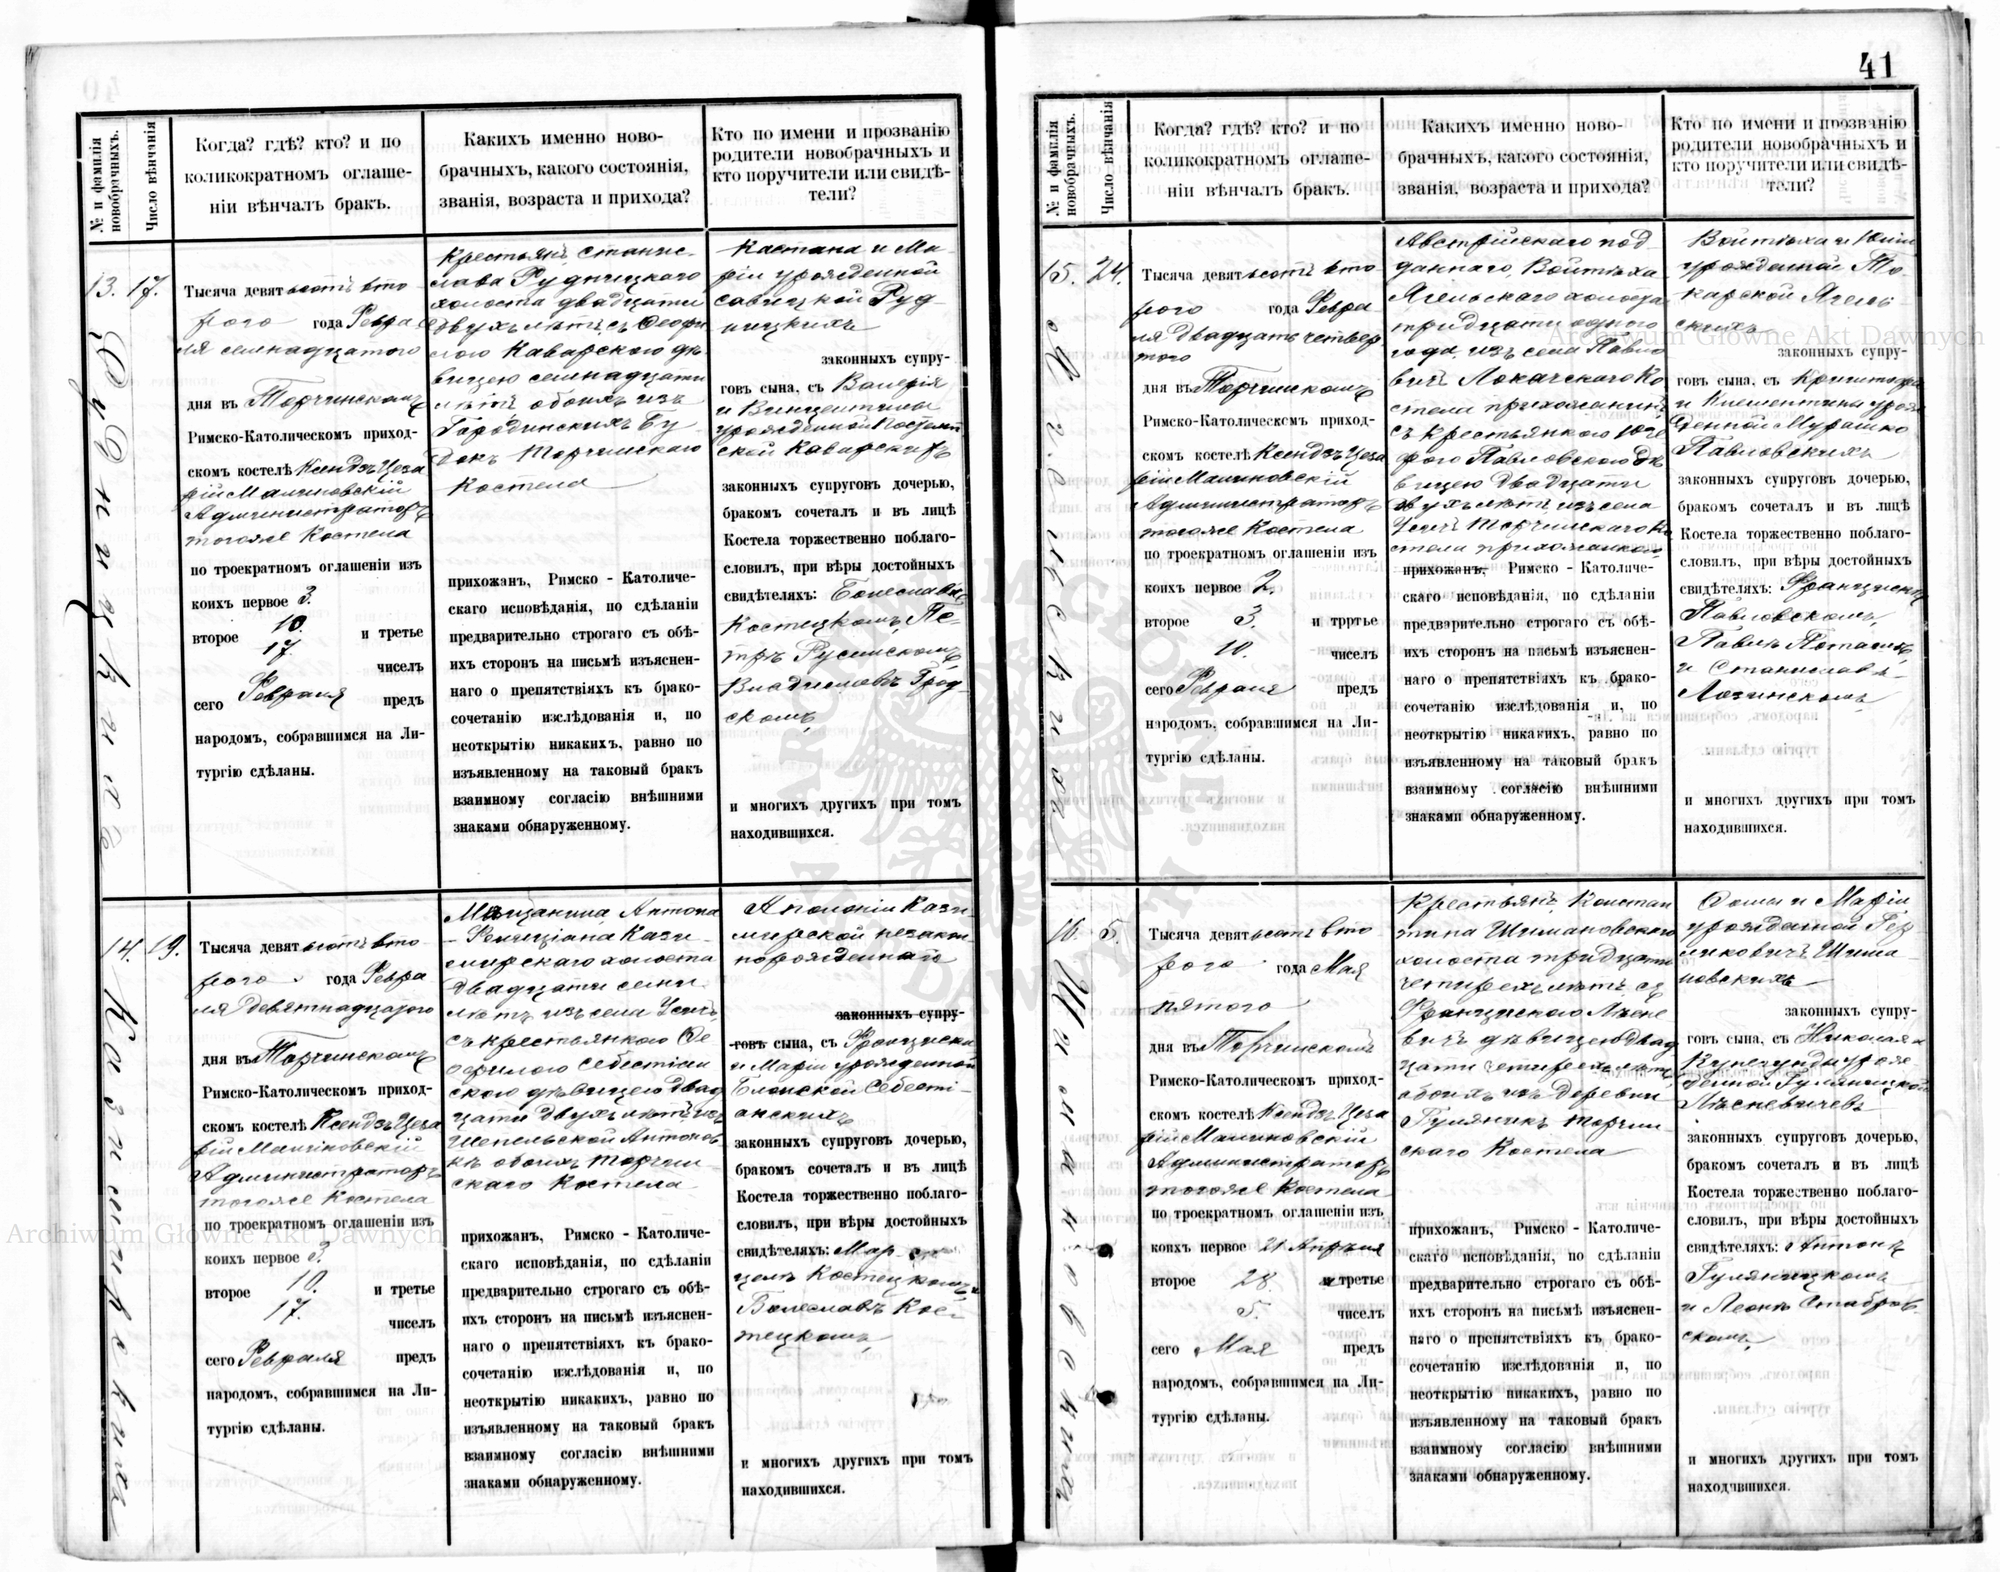 41
№ и фамилія новобрачныхъ.
Число вѣнчанія
Когда? гдѣ? кто? и по
коликократномъ оглаше-
ніи вѣнчалъ бракъ.
Какихъ именно ново-
брачныхъ, какого состоянія,
званія, возраста и прихода?
Кто по имени и прозванію
родители новобрачныхъ и
кто поручители или свидѣ-
тели?
13.
17.
Рудницкихъ
Тысяча девятьсотъ вто
рого года Февра
ля семнадцатого
дня въ Торчинскомъ
Римско-Католическомъ приход-
скомъ костелѣ Ксендзъ Цеза
рій Малиновскій
Администраторъ
тогоже Костела
по троекратномъ оглашеніи изъ
коихъ первое 3.
второе 10. и третье
17. чиселъ
сего Февраля предъ
народомъ, собравшимся на Ли-
тургію сдѣланы.
Крестьянъ, Станис-
лава Рудницкого
холоста двадцати
двухъ лѣтъ, съ Теофи
лею Каварского дѣ
вицею семнадцати
лѣтъ обоихъ изъ
Городинскихъ Бу
докъ Торчинскаго
Костела
прихожанъ, Римско-Католиче-
скаго исповѣданія, по сдѣланіи
предварительно строгаго съ обѣ-
ихъ сторонъ на письмѣ изъяснен-
наго о препятствіяхъ къ брако-
сочетанію изслѣдованія и, по
неоткрытію никакихъ, равно по
изъявленному на таковый бракъ
взаимному согласію внѣшними
знаками обнаруженному.
Каетана и Ма-
ріи урожденной
Савицкой Руд-
ницкихъ
законныхъ супру-
говъ сына, съ Валерія
и Винцентины
урожденной Костец
ской Каварскихъ
законныхъ супруговъ дочерью,
бракомъ сочеталъ и въ лицѣ
Костела торжественно поблаго-
словилъ, при вѣры достойныхъ
свидѣтеляхъ: Болеславѣ
Костецкомъ, Пе-
трѣ Русинскомъ,
Владиславѣ Грод-
скомъ,
и многихъ другихъ при томъ
находившихся.
14.
19.
Казимирскихъ
Тысяча девятьсотъ вто-
рого года Февра
ля девятнадцатого
дня въ Торчинскомъ
Римско-Католическомъ приход-
скомъ костелѣ Ксендзъ Цеза
рій Малиновскій
Администраторъ
тогоже Костела
по троекратномъ оглашеніи изъ
коихъ первое 3.
второе 10. и третье
17. чиселъ
сего Февраля предъ
народомъ, собравшимся на Ли-
тургію сдѣланы.
Мещанина Антона
Фелиціана Кази-
мирскаго холоста
двадцати семи
лѣтъ изъ села Усичъ,
съ крестьянкою Те
офилою Себестіан
скою дѣвицею двад
цати двухъ лѣтъ, изъ
Шепельской Антонов
ки обоихъ Торчин-
скаго Костела
прихожанъ, Римско-Католиче-
скаго исповѣданія, по сдѣланіи
предварительно строгаго съ обѣ-
ихъ сторонъ на письмѣ изъяснен-
наго о препятствіяхъ къ брако-
сочетанію изслѣдованія и, по
неоткрытію никакихъ, равно по
изъявленному на таковый бракъ
взаимному согласію внѣшними
знаками обнаруженному.
Аполоніи Кази-
мирской незакон
норожденнаго
законныхъ супру-
говъ сына, съ Францишка
и Маріи урожденной
Блонской Себести-
анскихъ
законныхъ супруговъ дочерью,
бракомъ сочеталъ и въ лицѣ
Костела торжественно поблаго-
словилъ, при вѣры достойныхъ
свидѣтеляхъ: Мар-
целѣ Костецкомъ и
Болеславѣ Кос-
тецкомъ,
и многихъ другихъ при томъ
находившихся.
№ и фамилія новобрачныхъ.
Число вѣнчанія
Когда? гдѣ? кто? и по
коликократномъ оглаше-
ніи вѣнчалъ бракъ.
Какихъ именно ново-
брачныхъ, какого состоянія,
званія, возраста и прихода?
Кто по имени и прозванію
родители новобрачныхъ и
кто поручители или свидѣ-
тели?
15.
24.
Тысяча девятьсотъ вто
рого года Февра-
ля двадцать четвер
того
дня въ Торчинскомъ
Римско-Католическомъ приход-
скомъ костелѣ Ксендзъ Цеза
рій Малиновскій
Администраторъ
тогоже Костела
по троекратномъ оглашеніи изъ
коихъ первое 2.
второе 3. и трртье
10. чиселъ
сего Февраля предъ
народомъ, собравшимся на Ли-
тургію сдѣланы.
Австрійскаго под-
даннаго, Войтѣха
Ягельскаго холоста
тридцати одного
года изъ села Павло
вичъ Локачскаго Ко
стела прихожанинъ,
съ крестьянкою Юзе
фою Павловского дѣ
вицею двадцати
двухъ лѣтъ, изъ села
Усичъ Торчинскаго Ко
стела прихожанкою
прихожанъ, Римско-Католиче-
скаго исповѣданія, по сдѣланіи
предварительно строгаго съ обѣ-
ихъ сторонъ на письмѣ изъяснен-
наго о препятствіяхъ къ брако-
сочетанію изслѣдованія и, по
неоткрытію никакихъ, равно по
изъявленному на таковый бракъ
взаимному согласію внѣшними
знаками обнаруженному.
Войтѣха и
урожденной То-
карской Ягель
скихъ
законныхъ супру-
говъ сына, съ Криштофа
и Клементины урож
денной Мурашко
Павловскихъ
законныхъ супруговъ дочерью,
бракомъ сочеталъ и въ лицѣ
Костела торжественно поблаго-
словилъ, при вѣры достойныхъ
свидѣтеляхъ: Францишкѣ
Павловскомъ,
Павлѣ
и Станиславѣ
Лозинскомъ,
и многихъ другихъ при томъ
находившихся.
16.
5.
Шимановскихъ
Тысяча девятьсотъ вто
рого года Мая
пятого
дня въ Торчинскомъ
Римско-Католическомъ приход-
скомъ костелѣ Ксендзъ Цеза
рій Малиновскій
Администраторъ
тогоже Костела
по троекратномъ оглашеніи изъ
коихъ первое 21 Апрѣля
второе 28. и третье
5. чиселъ
сего Мая предъ
народомъ, собравшимся на Ли-
тургію сдѣланы.
Крестьянъ, Констан
тина Шимановского
холоста тридцати
четирехъ лѣтъ, съ
Францискою Лѣсне
вичъ дѣвицею двад
цати четирехъ лѣтъ,
обоихъ изъ деревни
Гуляникъ Торчин-
скаго Костела
прихожанъ, Римско-Католиче-
скаго исповѣданія, по сдѣланіи
предварительно строгаго съ обѣ-
ихъ сторонъ на письмѣ изъяснен-
наго о препятствіяхъ къ брако-
сочетанію изслѣдованія и, по
неоткрытію никакихъ, равно по
изъявленному на таковый бракъ
взаимному согласію внѣшними
знаками обнаруженному.
Фомы и Маріи
урожденной
Шима-
новскихъ
законныхъ супру-
говъ сына, съ Николая и
Кунегунды урож
денной Гуляницкой
Лѣсневичевъ
законныхъ супруговъ дочерью,
бракомъ сочеталъ и въ лицѣ
Костела торжественно поблаго-
словилъ, при вѣры достойныхъ
свидѣтеляхъ: Антонѣ
Гуляницкомъ
и Леонѣ Стабров
скомъ,
и многихъ другихъ при томъ
находившихся.
Archiwum Główne Akt Dawnych
Archiwum Główne Akt Dawnych
ARCHIWUM GŁÓWNE AKT DAWNYCH